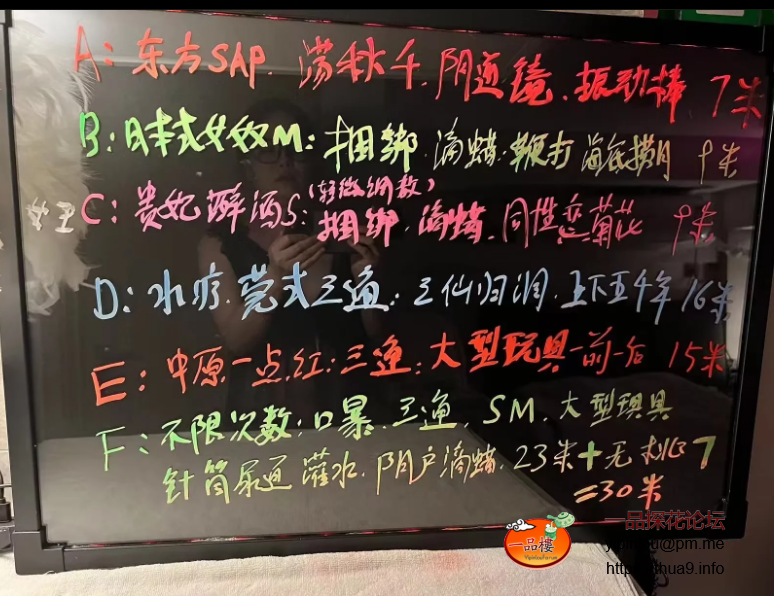 A: 东方SAP. 荡秋千. 阴道镜、振动棒 7米
B: 日本式女奴M: 捆绑. 滴蜡. 鞭打 海底捞月 9米
女王 C: 贵妃醉酒S: (轻微调教) 捆绑. 滴蜡. 同性恋. 菊花 9米
D: 水疗. 莞式三通: 三仙归洞. 上下五千年 16米
E: 中原一点红: 三通: 大型玩具一前一后 15米
F: 不限次数: 口暴. 三通. SM. 大型玩具
针筒尿道灌水. 阴户滴蜡. 23米+无
=30米
一品楼
YipinlouForum
品探花论坛
@pm.me
http
hua9.info